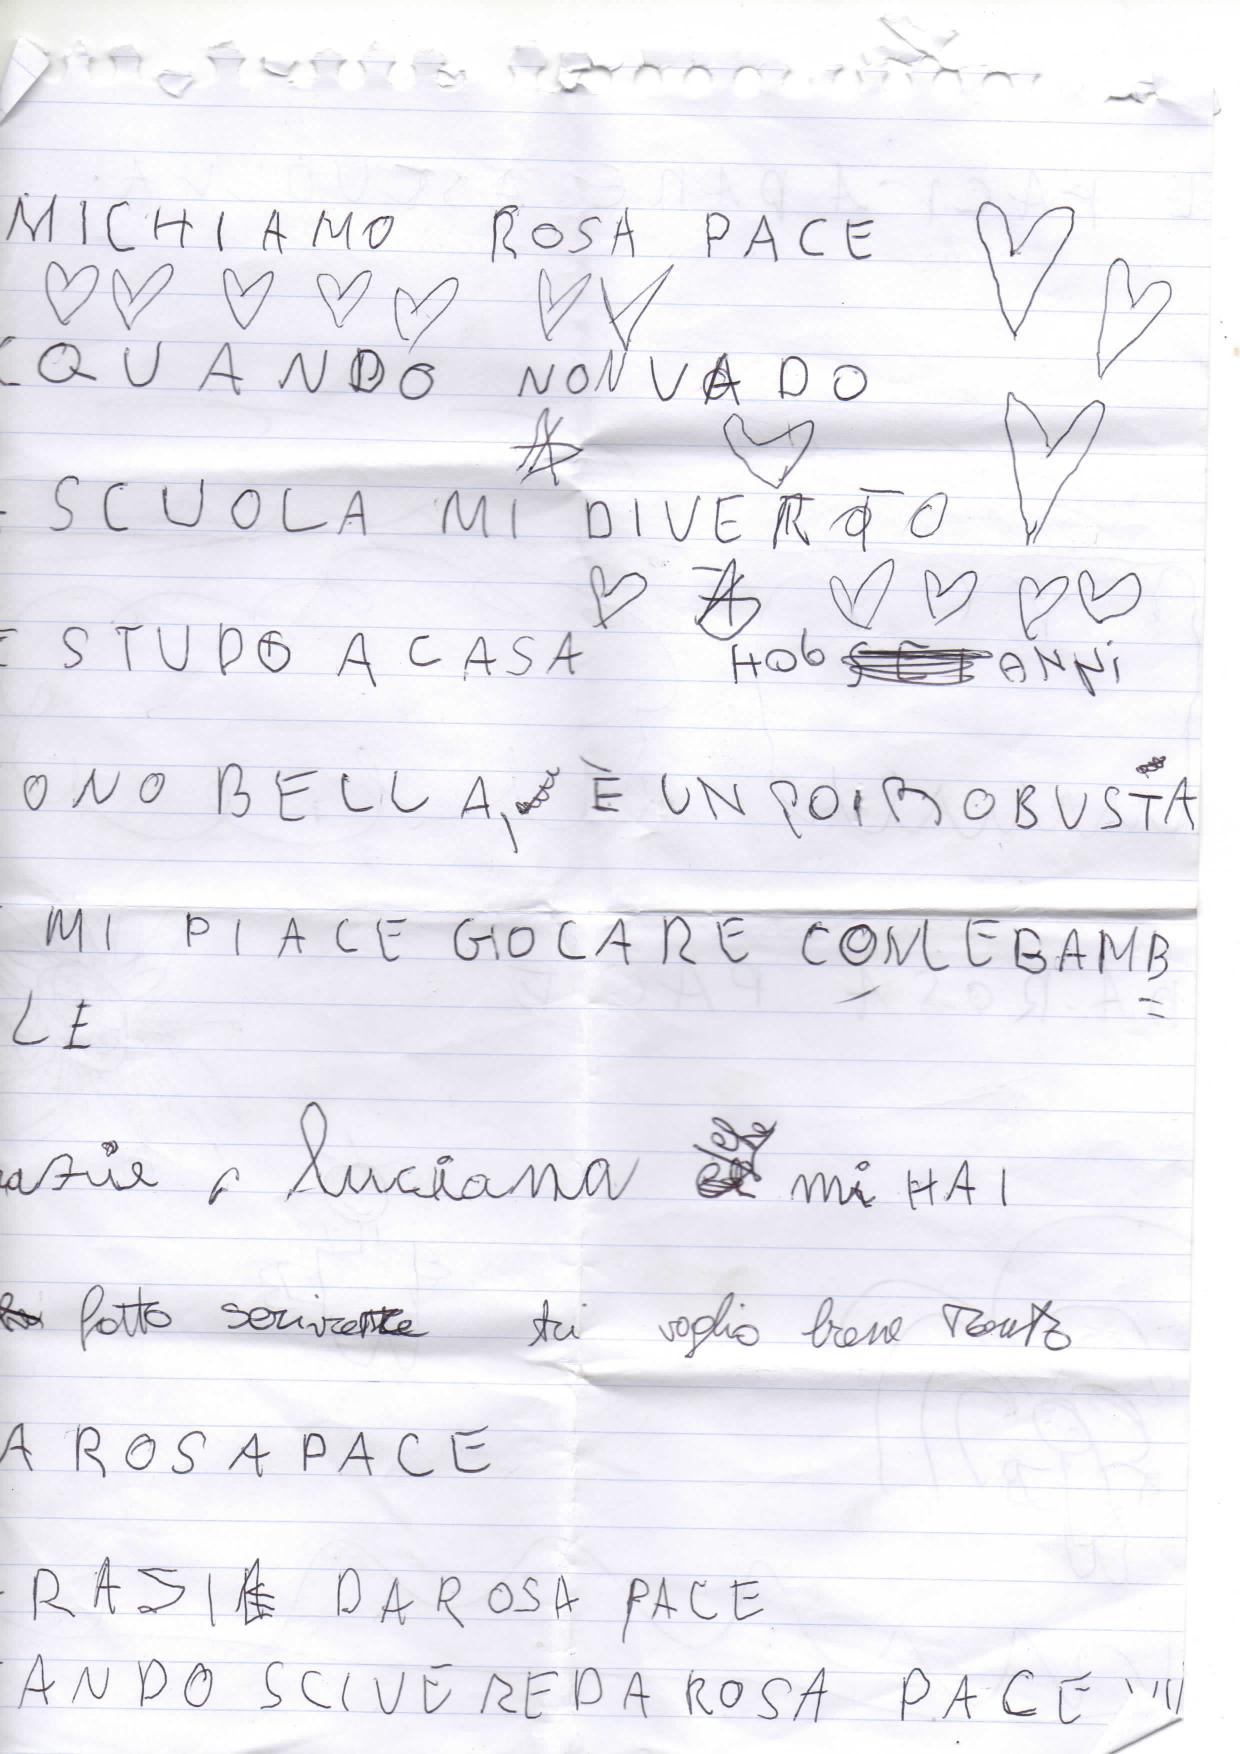 MICHIAMO ROSA PACE
QUANDO NONVADO
SCUOLA MI DIVERTO
E STUDO A CASA HO 6 ANNI
ONO BELLA, È UN POI ROBUSTA
MI PIACE GIOCARE CONLEBAMB
LE
azie, luciana mi HAI
fatto scrivere ti voglio bene Tanto
A ROSAPACE
RASIE DA ROSA PACE
ANDO SCIVEREDA ROSA PACE